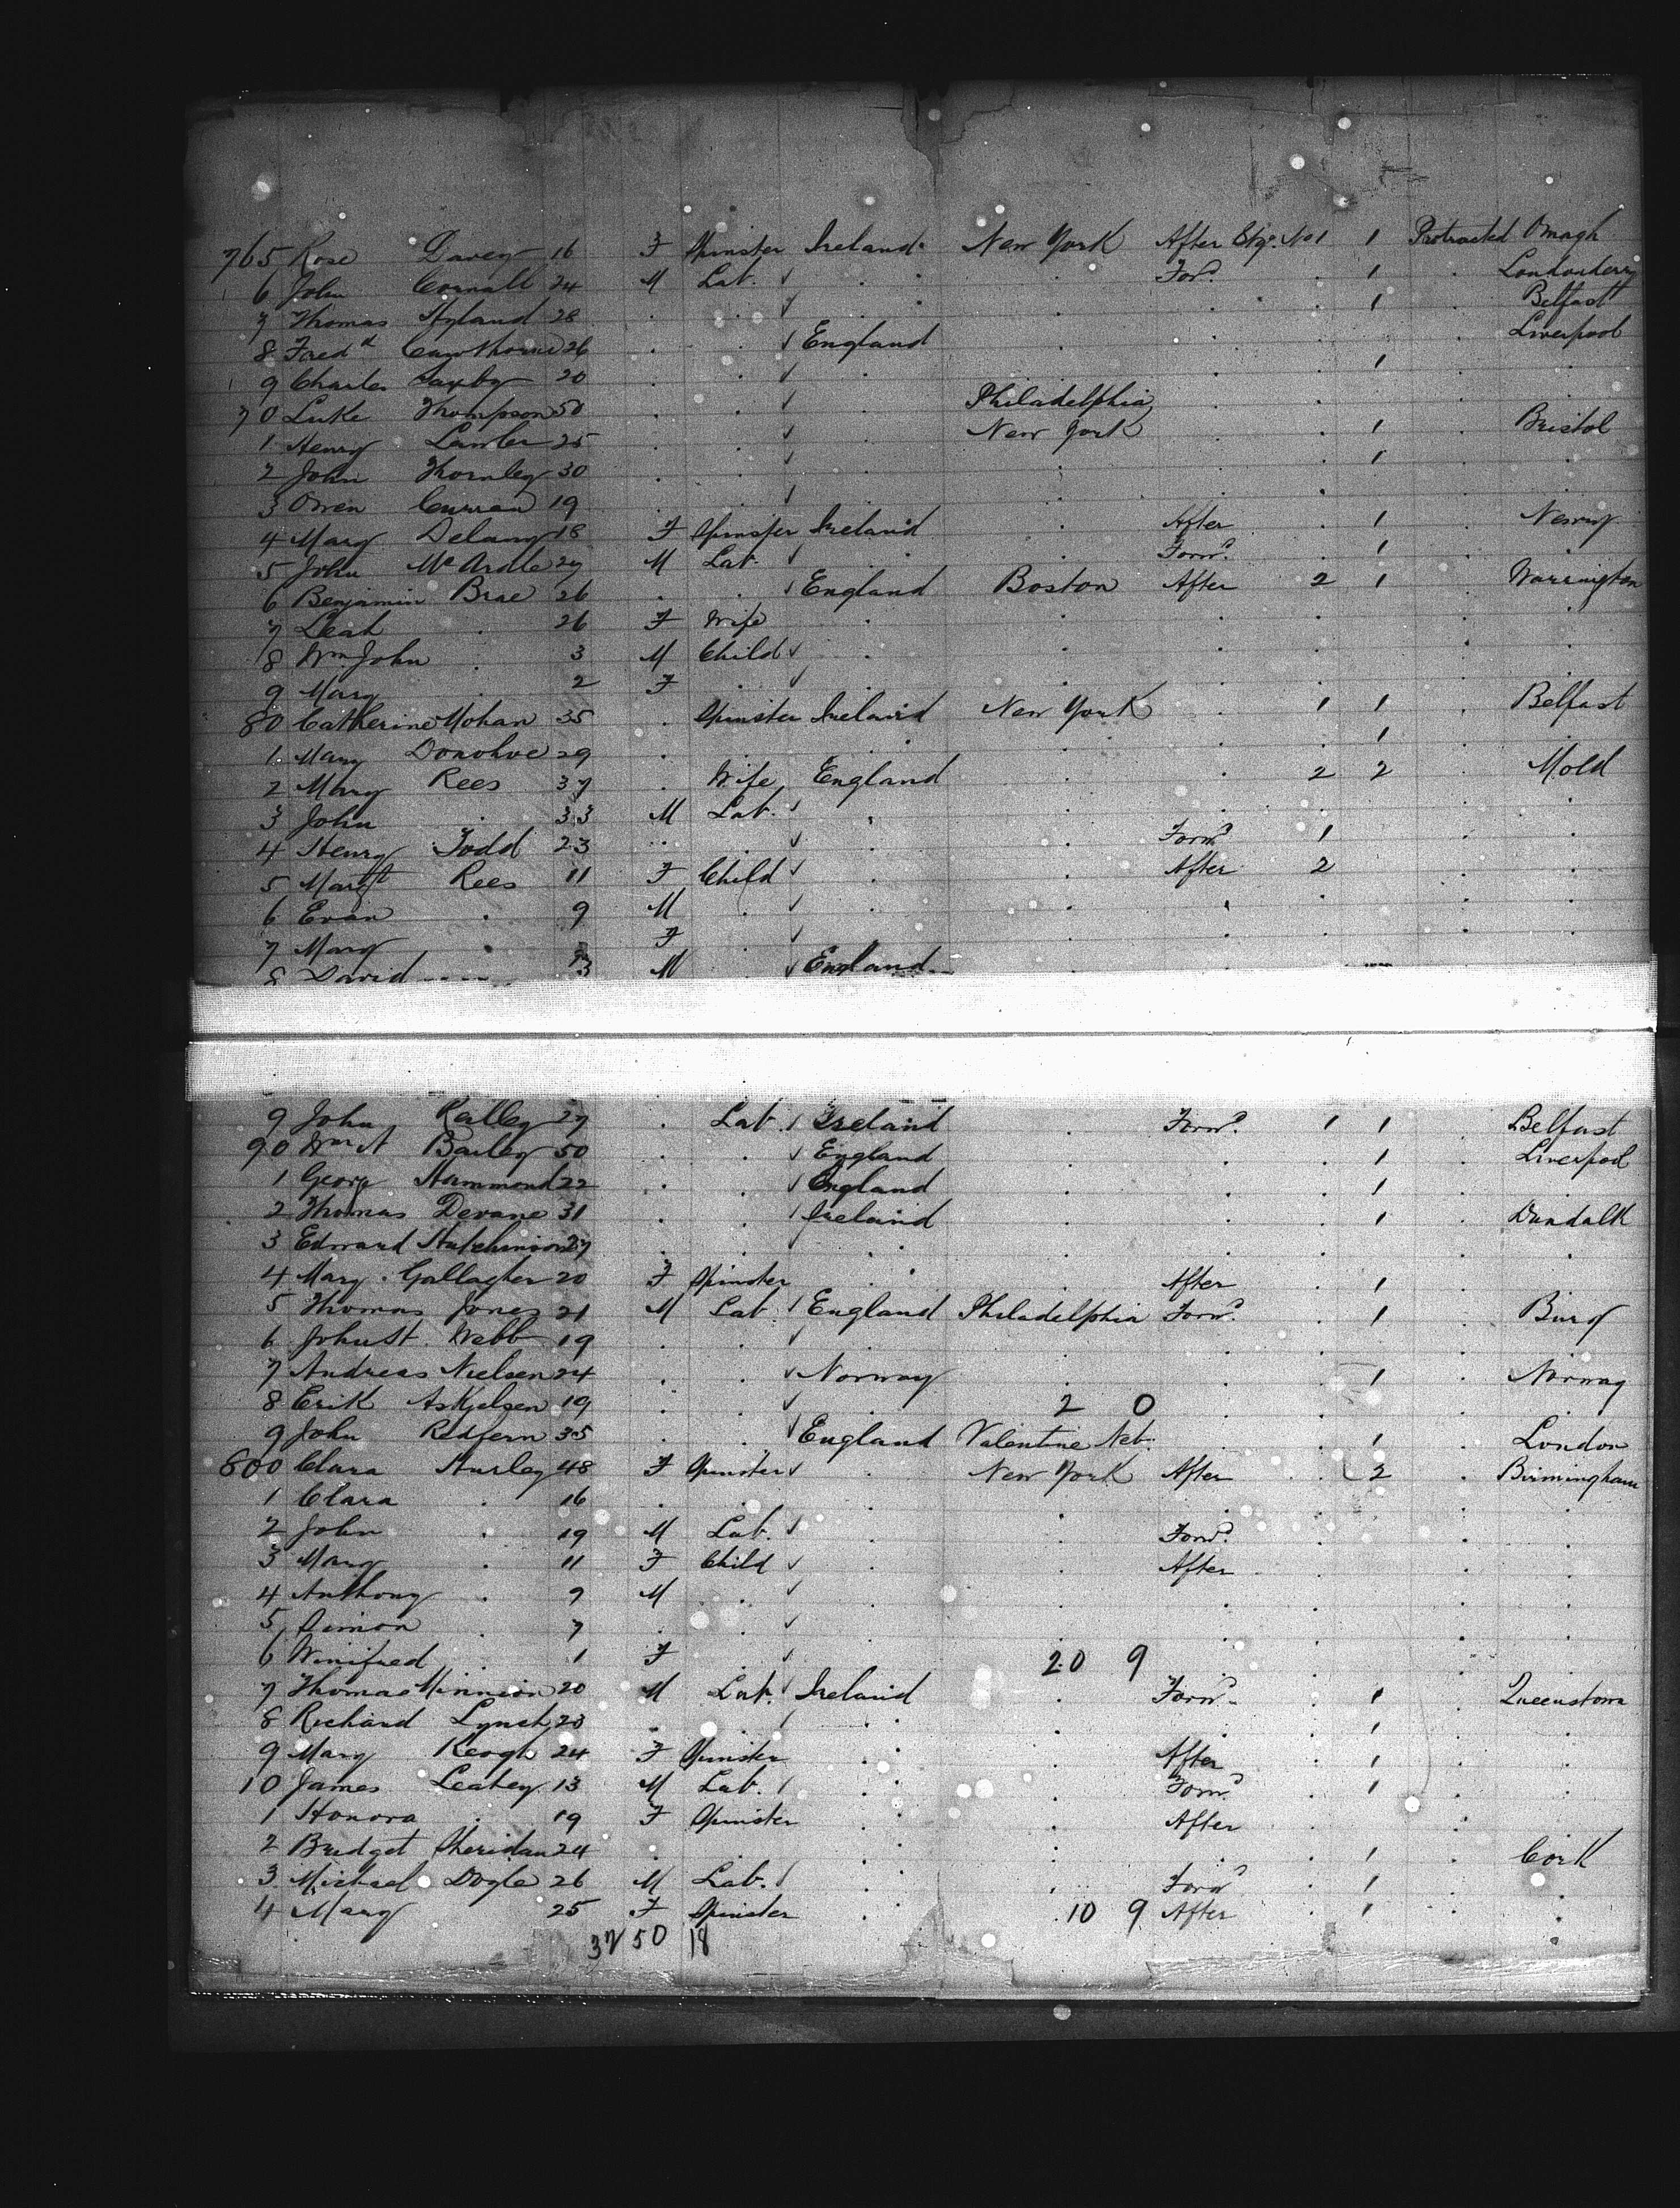 765 Rose Davey 16 F Spinster Ireland New York After Stge. No 1 1 Protracted Omagh
6 John Cornall 24 M Lab. ✓ . . For.d . 1 . Londonderry
7 Thomas Hyland 28 . . ✓ . . . . 1 . Belfast
8 Fredk Cawthorne 26 . . ✓ England . . . . Liverpool
9 Charles Saxby 20 . . ✓ . . . . 1 . .
70 Luke Thompson 50 . . ✓ . Philadelphia . . . .
1 Henry Lawler 25 . . ✓ . New York . . 1 . Bristol
2 John Thornley 30 . . ✓ . . . . 1 . .
3 Owen Curran 19 . . ✓ . . . . . .
4 Mary Delany 18 F Spinster Ireland . After . 1 . Newry
5 John McArdle 27 M Lab. ✓ . . Forwd. . 1 . .
6 Benjamin Brae 26 . . ✓ England Boston After 2 1 . Warrington
7 Leah . 26 F Wife . . . . . .
8 Wm. John . 3 M Child ✓ . . . . . .
9 Mary . 2 F . ✓ . . . . . .
80 Catherine Mohan 35 . Spinster Ireland New York . 1 1 . Belfast
1 Mary Donohoe 29 . . . . . 1 . .
2 Mary Rees 37 . Wife England . . 2 2 . Mold
3 John . 33 M Lab. ✓ . . . . . .
4 Henry Todd 23 . . ✓ . . Forwd. 1 . .
5 Margt Rees 11 F Child ✓ . . After 2 . .
6 Evan . 9 M . ✓ . . . . . .
7 Mary . F . ✓ . . . . . .
8 David 3 M . ✓ England
9 John Reilley 27 . Lab. ✓ Ireland . Forwd. 1 1 . Belfast
90 Wm A Bailey 50 . . ✓ England . . . 1 . Liverpool
1 Georg Hammond 22 . . ✓ England . . . 1 . .
2 Thomas Devane 31 . . ✓ Ireland . . . 1 . Dundalk
3 Edward Hutchinson 27 . . ✓ . . . . . .
4 Mary Gallagher 20 F Spinster . . After . 1 . .
5 Thomas Jones 21 M Lab. ✓ England Philadelphia Forwd. . 1 . Bury
6 John St. Webb 19 . . ✓ . . . . . .
7 Andreas Nielsen 24 . . ✓ Norway . . . 1 . Norway
8 Erik Askjelsen 19 . . ✓ 2 0 . . . .
9 John Redfern 35 . . ✓ England Valentine Neb. . . 1 . London
800 Clara Hurley 48 F Spinster ✓ . New York After . 2 . Birmingham
1 Clara . 16 . . . . . . . .
2 John . 19 M Lab. ✓ . . Forwd. . . .
3 Mary . 11 F Child ✓ . . After . . .
4 Anthony . 9 M . ✓ . . . . . .
5 Simon . 7 . . ✓ . . . . . .
6 Winifred . 1 F . ✓ 20 9 . . . .
7 Thomas Minnion 20 M Lab. ✓ Ireland . Forwd. . 1 . Queenstown
8 Richard Lynch 20 . . ✓ . . . . 1 . .
9 Mary Keogh 24 F Spinster . . After . 1 . .
10 James Leahey 13 M Lab. ✓ . . Forwd. . 1 . .
1 Honora . 19 F Spinster . . After . . .
2 Bridget Sheridan 24 . . . . . . 1 . Cork
3 Michael Doyle 26 M Lab. ✓ . . Forwd . 1 . .
4 Mary 25 F Spinster . 10 9 After . 1 . .
32 50 18